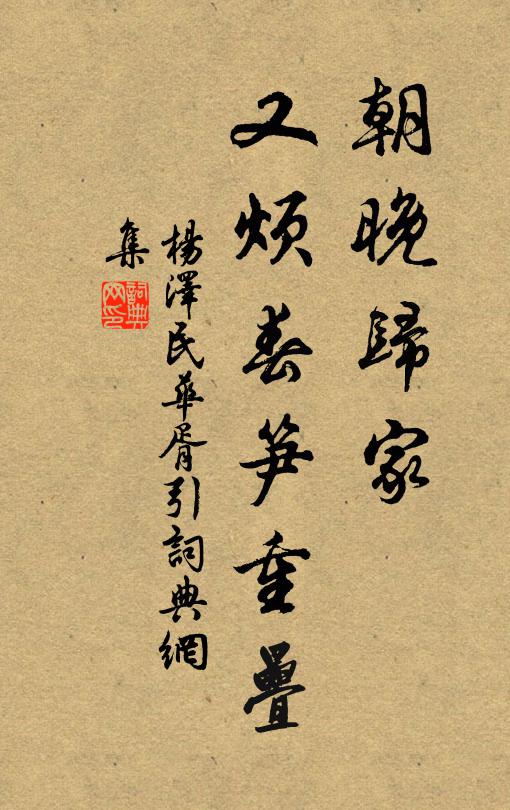 朝晚歸家
又煩春笋重疊
楊澤民華胥引詞典網
集
詞典
網印